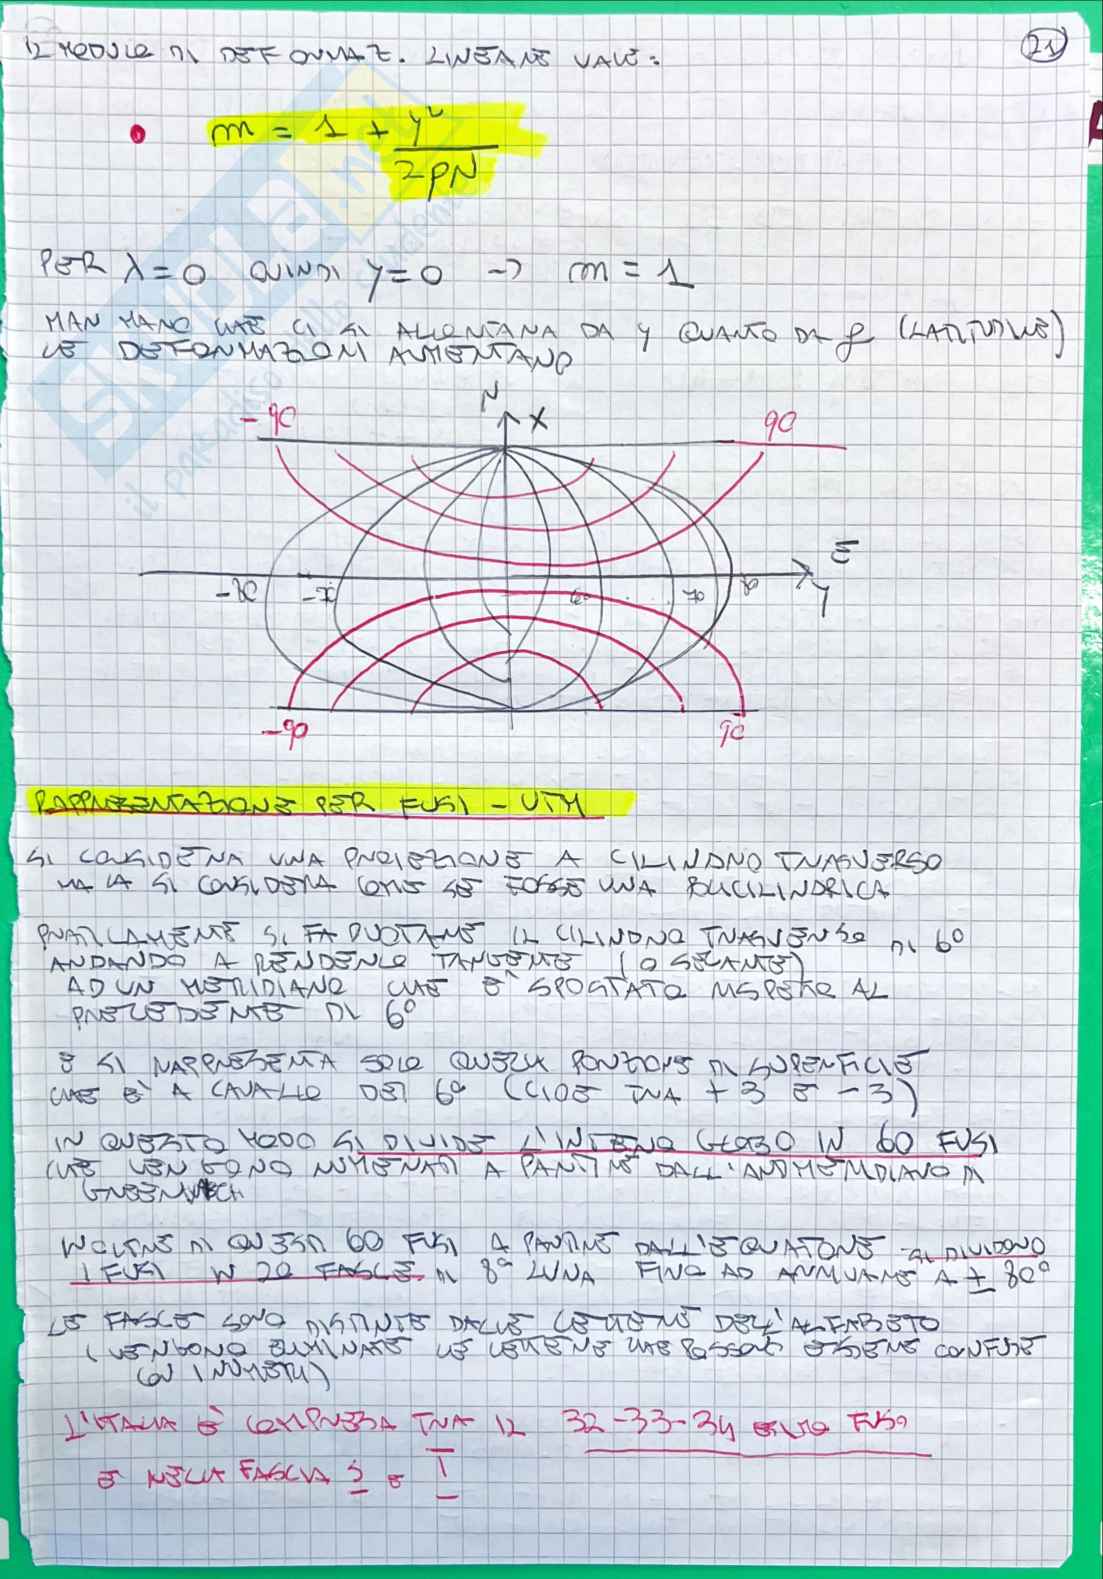 21
IL MODULO DI DEFORMAZ. LINEARE VALE:
m = 1 + y²/2ρN
PER λ=0 QUINDI y=0 → m=1
MAN MANO CHE CI SI ALLONTANA DA y QUANTO DA φ (LATITUDINE)
LE DEFORMAZIONI AUMENTANO
N
X
-90
90
E
Y
-90
90
RAPPRESENTAZIONE PER FUSI - UTM
SI CONSIDERA UNA PROIEZIONE A CILINDRO TRASVERSO
MA LA SI CONSIDERA COME SE FOSSE UNA POLICILINDRICA
PRATICAMENTE SI FA RUOTARE IL CILINDRO TRASVERSO DI 6°
ANDANDO A RENDERLO TANGENTE (O SECANTE)
AD UN MERIDIANO CHE È SPOSTATO RISPETTO AL
PRECEDENTE DI 6°
E SI RAPPRESENTA SOLO QUELLA PORZIONE DI SUPERFICIE
CHE È A CAVALLO DEI 6° (CIOE TRA +3 E -3)
IN QUESTO MODO SI DIVIDE L'INTERO GLOBO IN 60 FUSI
CHE VENGONO NUMERATI A PARTIRE DALL'ANTIMERIDIANO DI
GREENWICH
INOLTRE DI QUESTI 60 FUSI A PARTIRE DALL'EQUATORE SI DIVIDONO
I FUSI IN 20 FASCE DI 8° L'UNA FINO AD ARRIVARE A ± 80°
LE FASCE SONO DISTINTE DALLE LETTERE DELL'ALFABETO
(VENGONO ELIMINATE LE LETTERE CHE POSSONO ESSERE CONFUSE
CON I NUMERI)
L'ITALIA È COMPRESA TRA IL 32-33-34 FUSO
E NELLA FASCIA S E T
SKUOLA.net
il paradiso dello studente